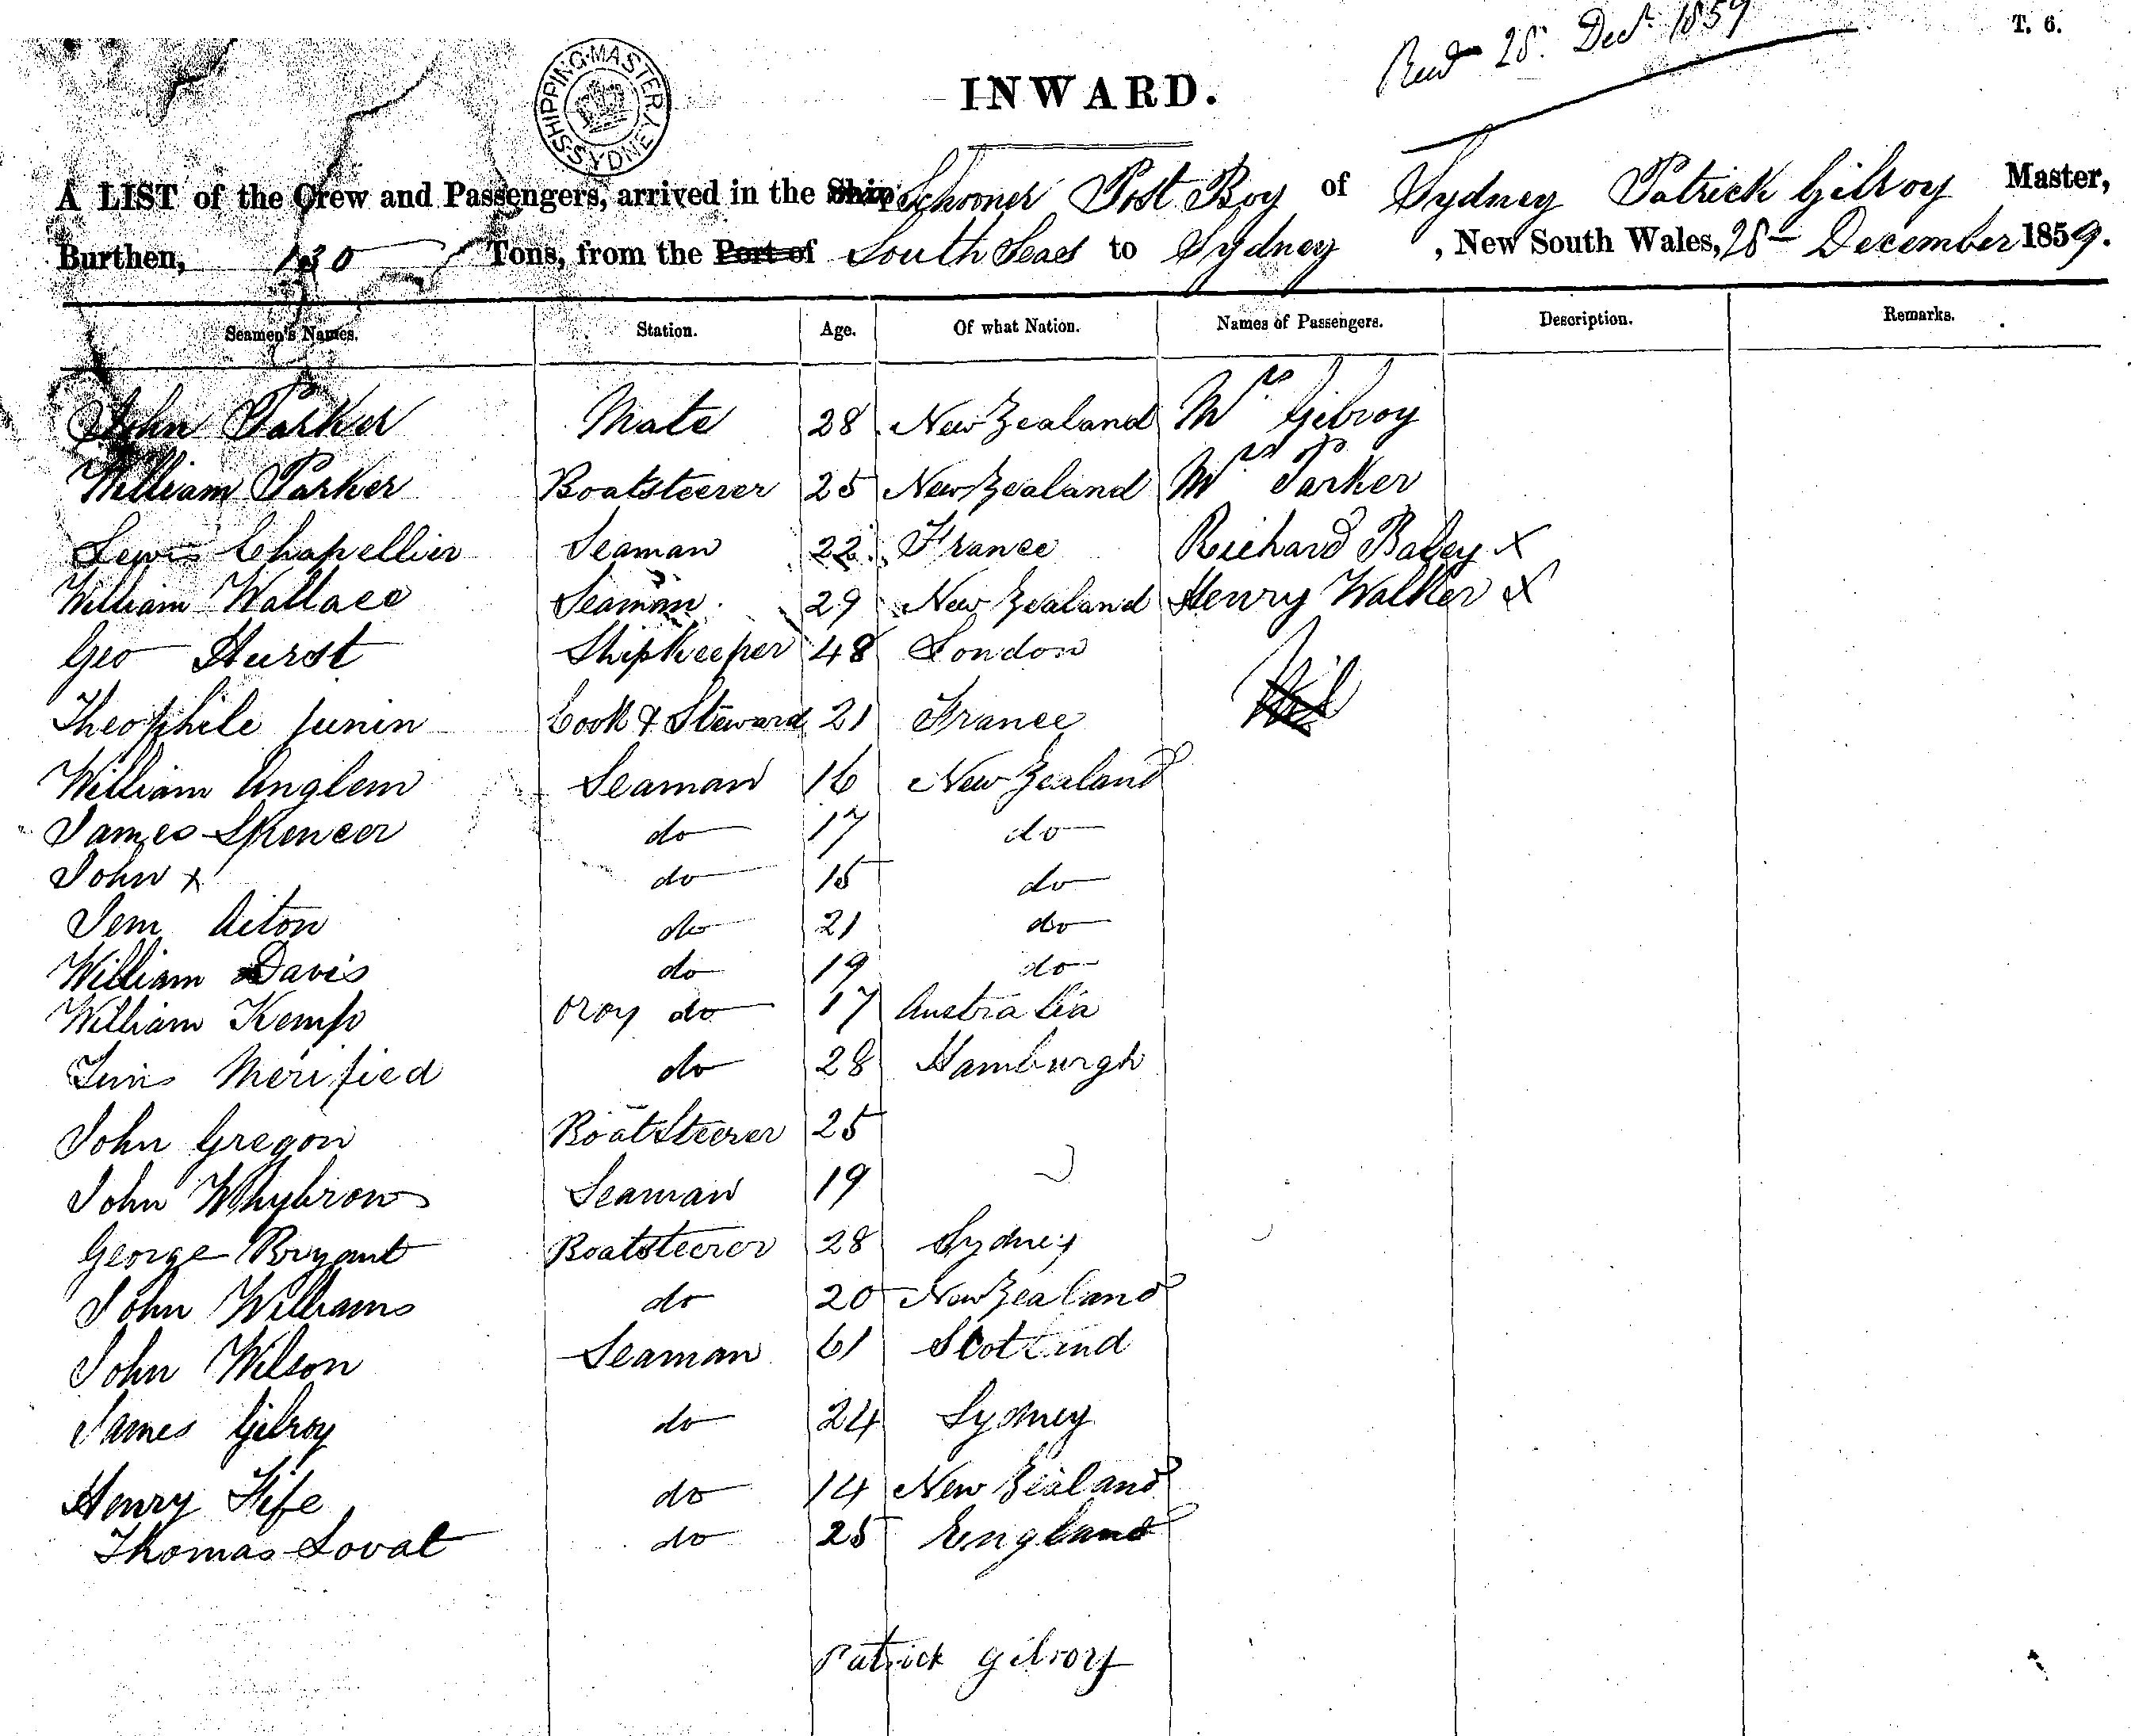 T. 6.
Recd 28. Decr 1859
SHIPPING MASTER SYDNEY
INWARD.
A LIST of the Crew and Passengers, arrived in the Ship Schooner Post Boy of Sydney Patrick Gilroy Master,
Burthen, 130 Tons, from the Port of South Seas to Sydney, New South Wales, 28 December 1859.
Seamen's Names. Station. Age. Of what Nation. Names of Passengers. Description. Remarks.
John Parker Mate 28 New Zealand Mrs Gilroy
William Parker Boatsteerer 25 New Zealand Mrs Parker
Lewis Chapellier Seaman 22 France Richard Baley x
William Wallace Seaman 29 New Zealand Henry Walker x
Geo Hurst Shipkeeper 48 London
Theophile Junin Cook & Steward 21 France
William Anglem Seaman 16 New Zealand
James Spencer do 17 do
John x do 15 do
Jem Aiton do 21 do
William Davis do 19 do
William Kemp do 17 Australia
Merified do 28 Hamburgh
John Gregon Boatsteerer 25
John Whybrow Seaman 19
George Bryant Boatsteerer 28 Sydney
John Williams do 20 New Zealand
John Wilson Seaman 61 Scotland
James Gilroy do 24 Sydney
Henry Fife do 14 New Zealand
Thomas Lovat do 25 England
Patrick Gilroy